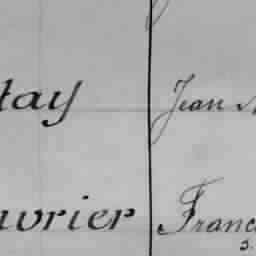 tay Jean
uvrier Franc